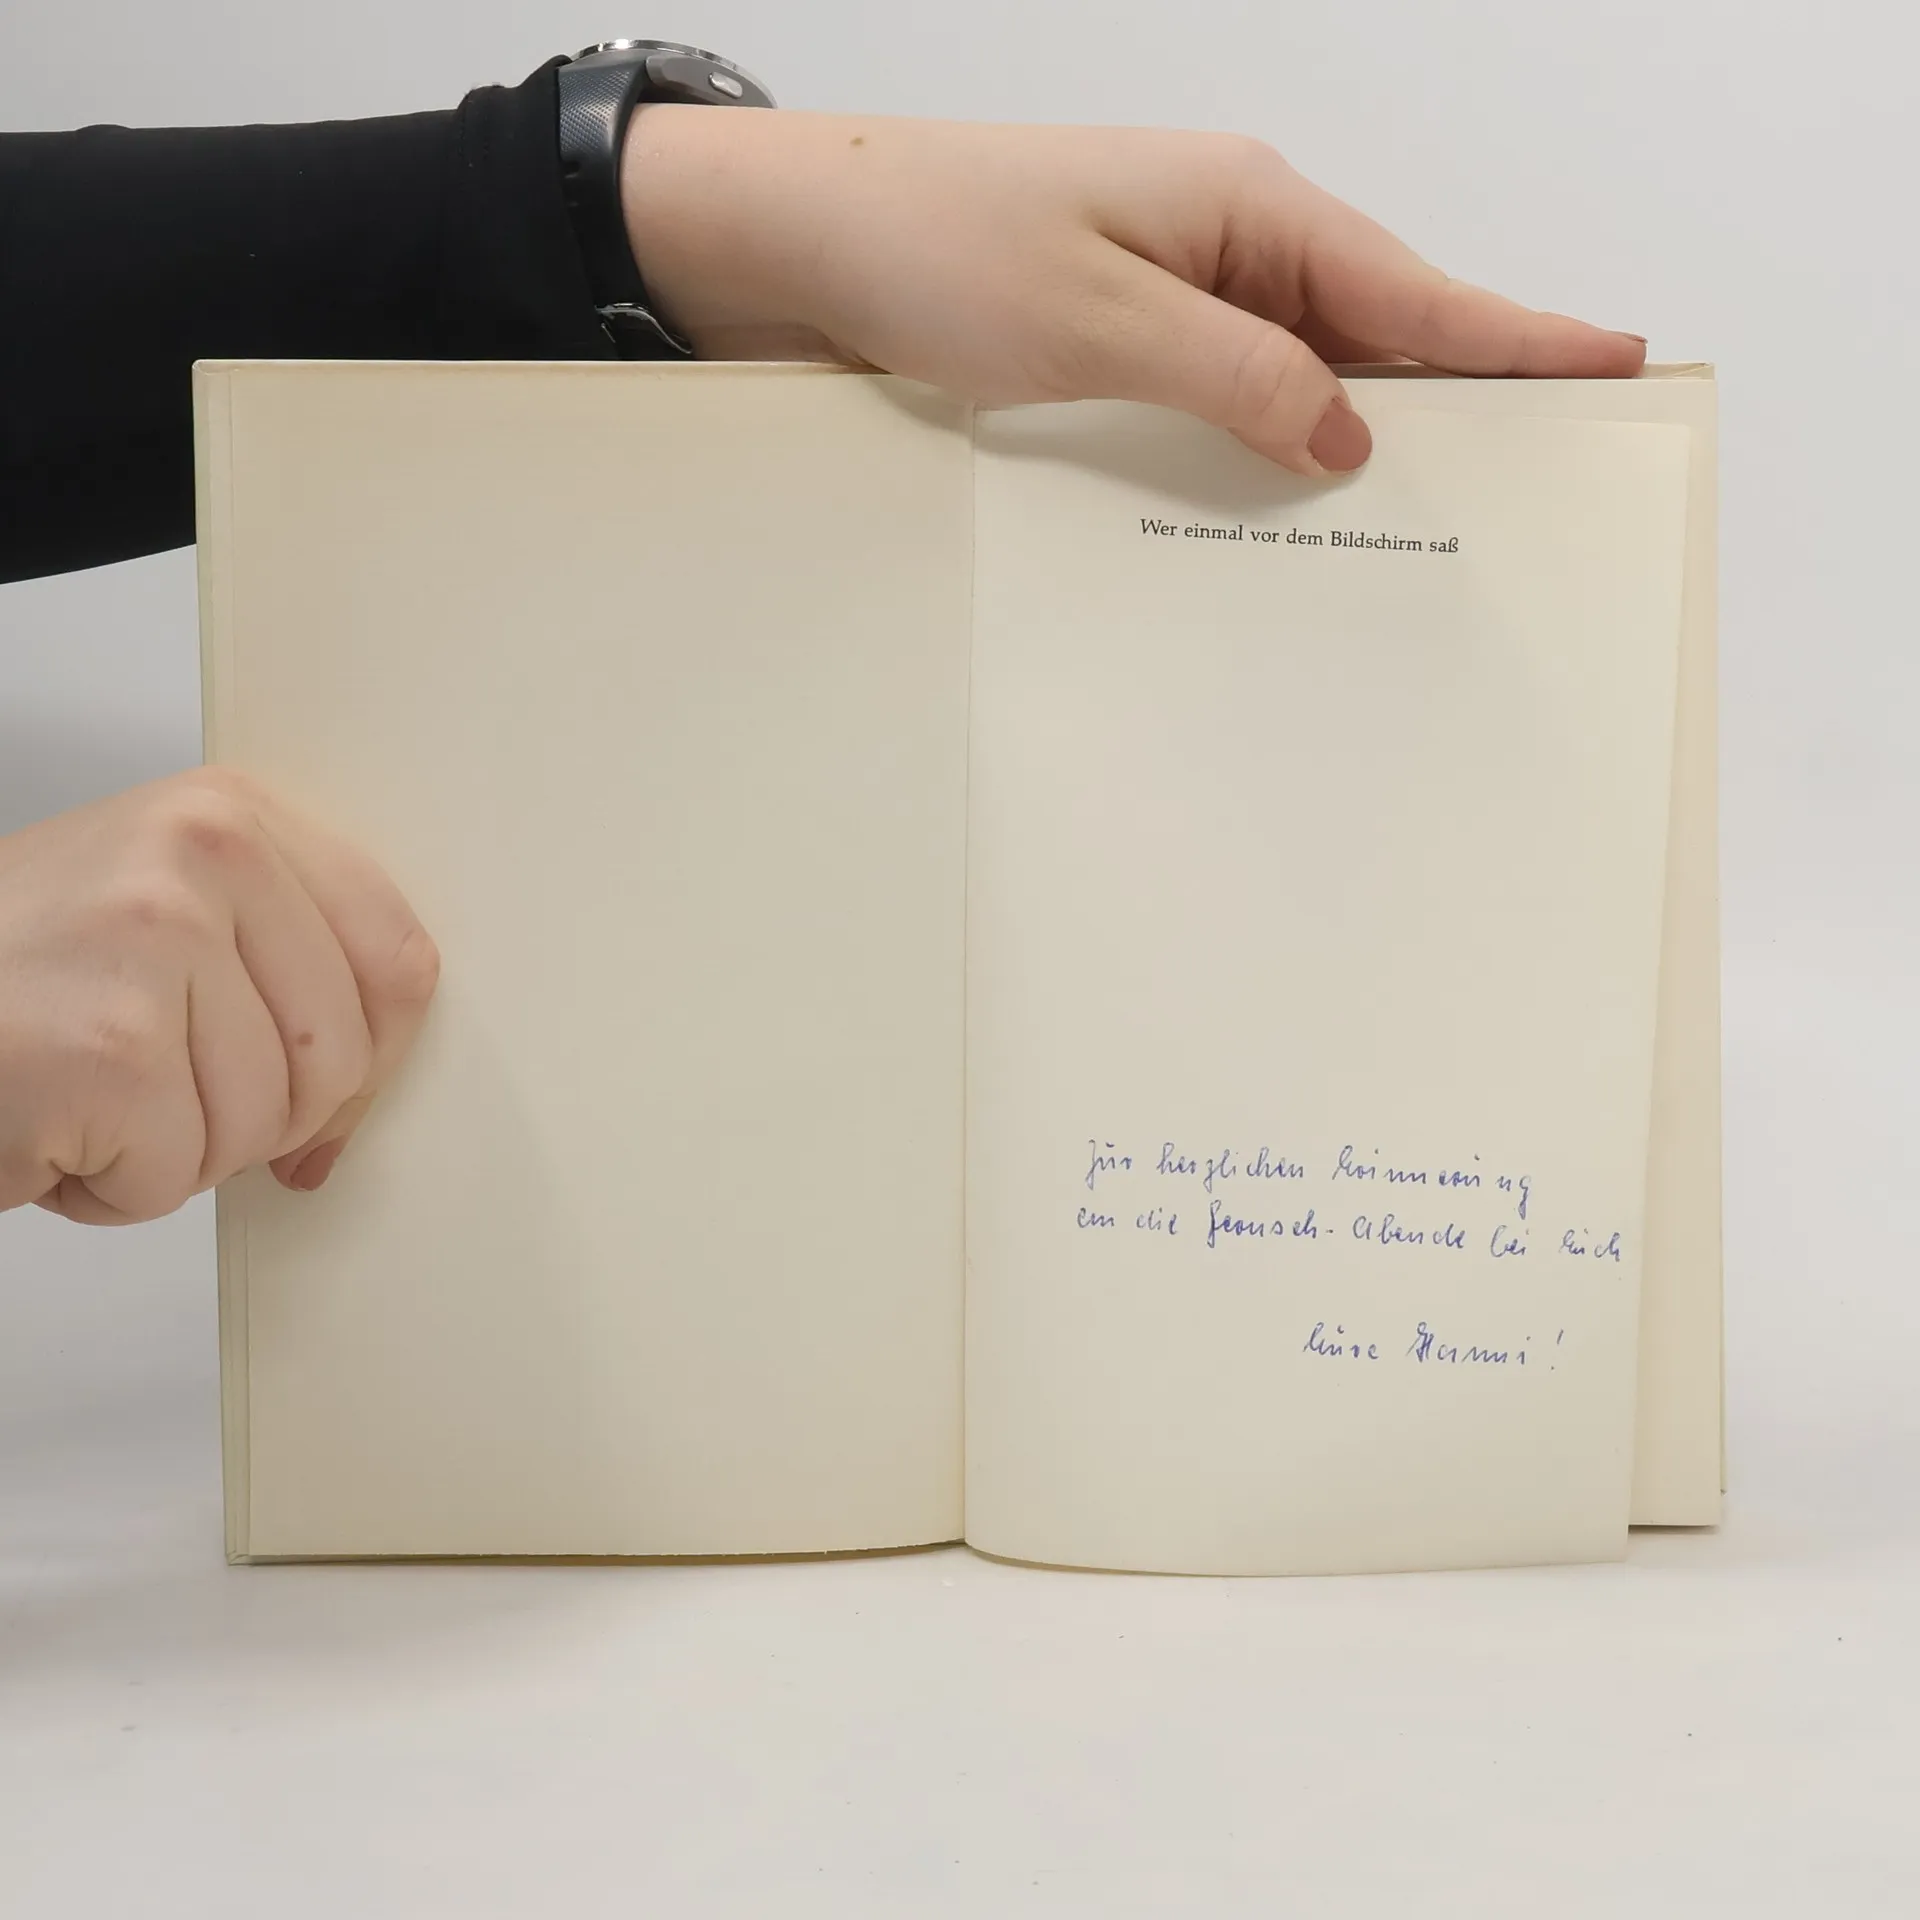 Wer einmal vor dem Bildschirm saß
Zur herzlichen Erinnerung
an die Fernseh-Abende bei Euch
Eure Hanni!